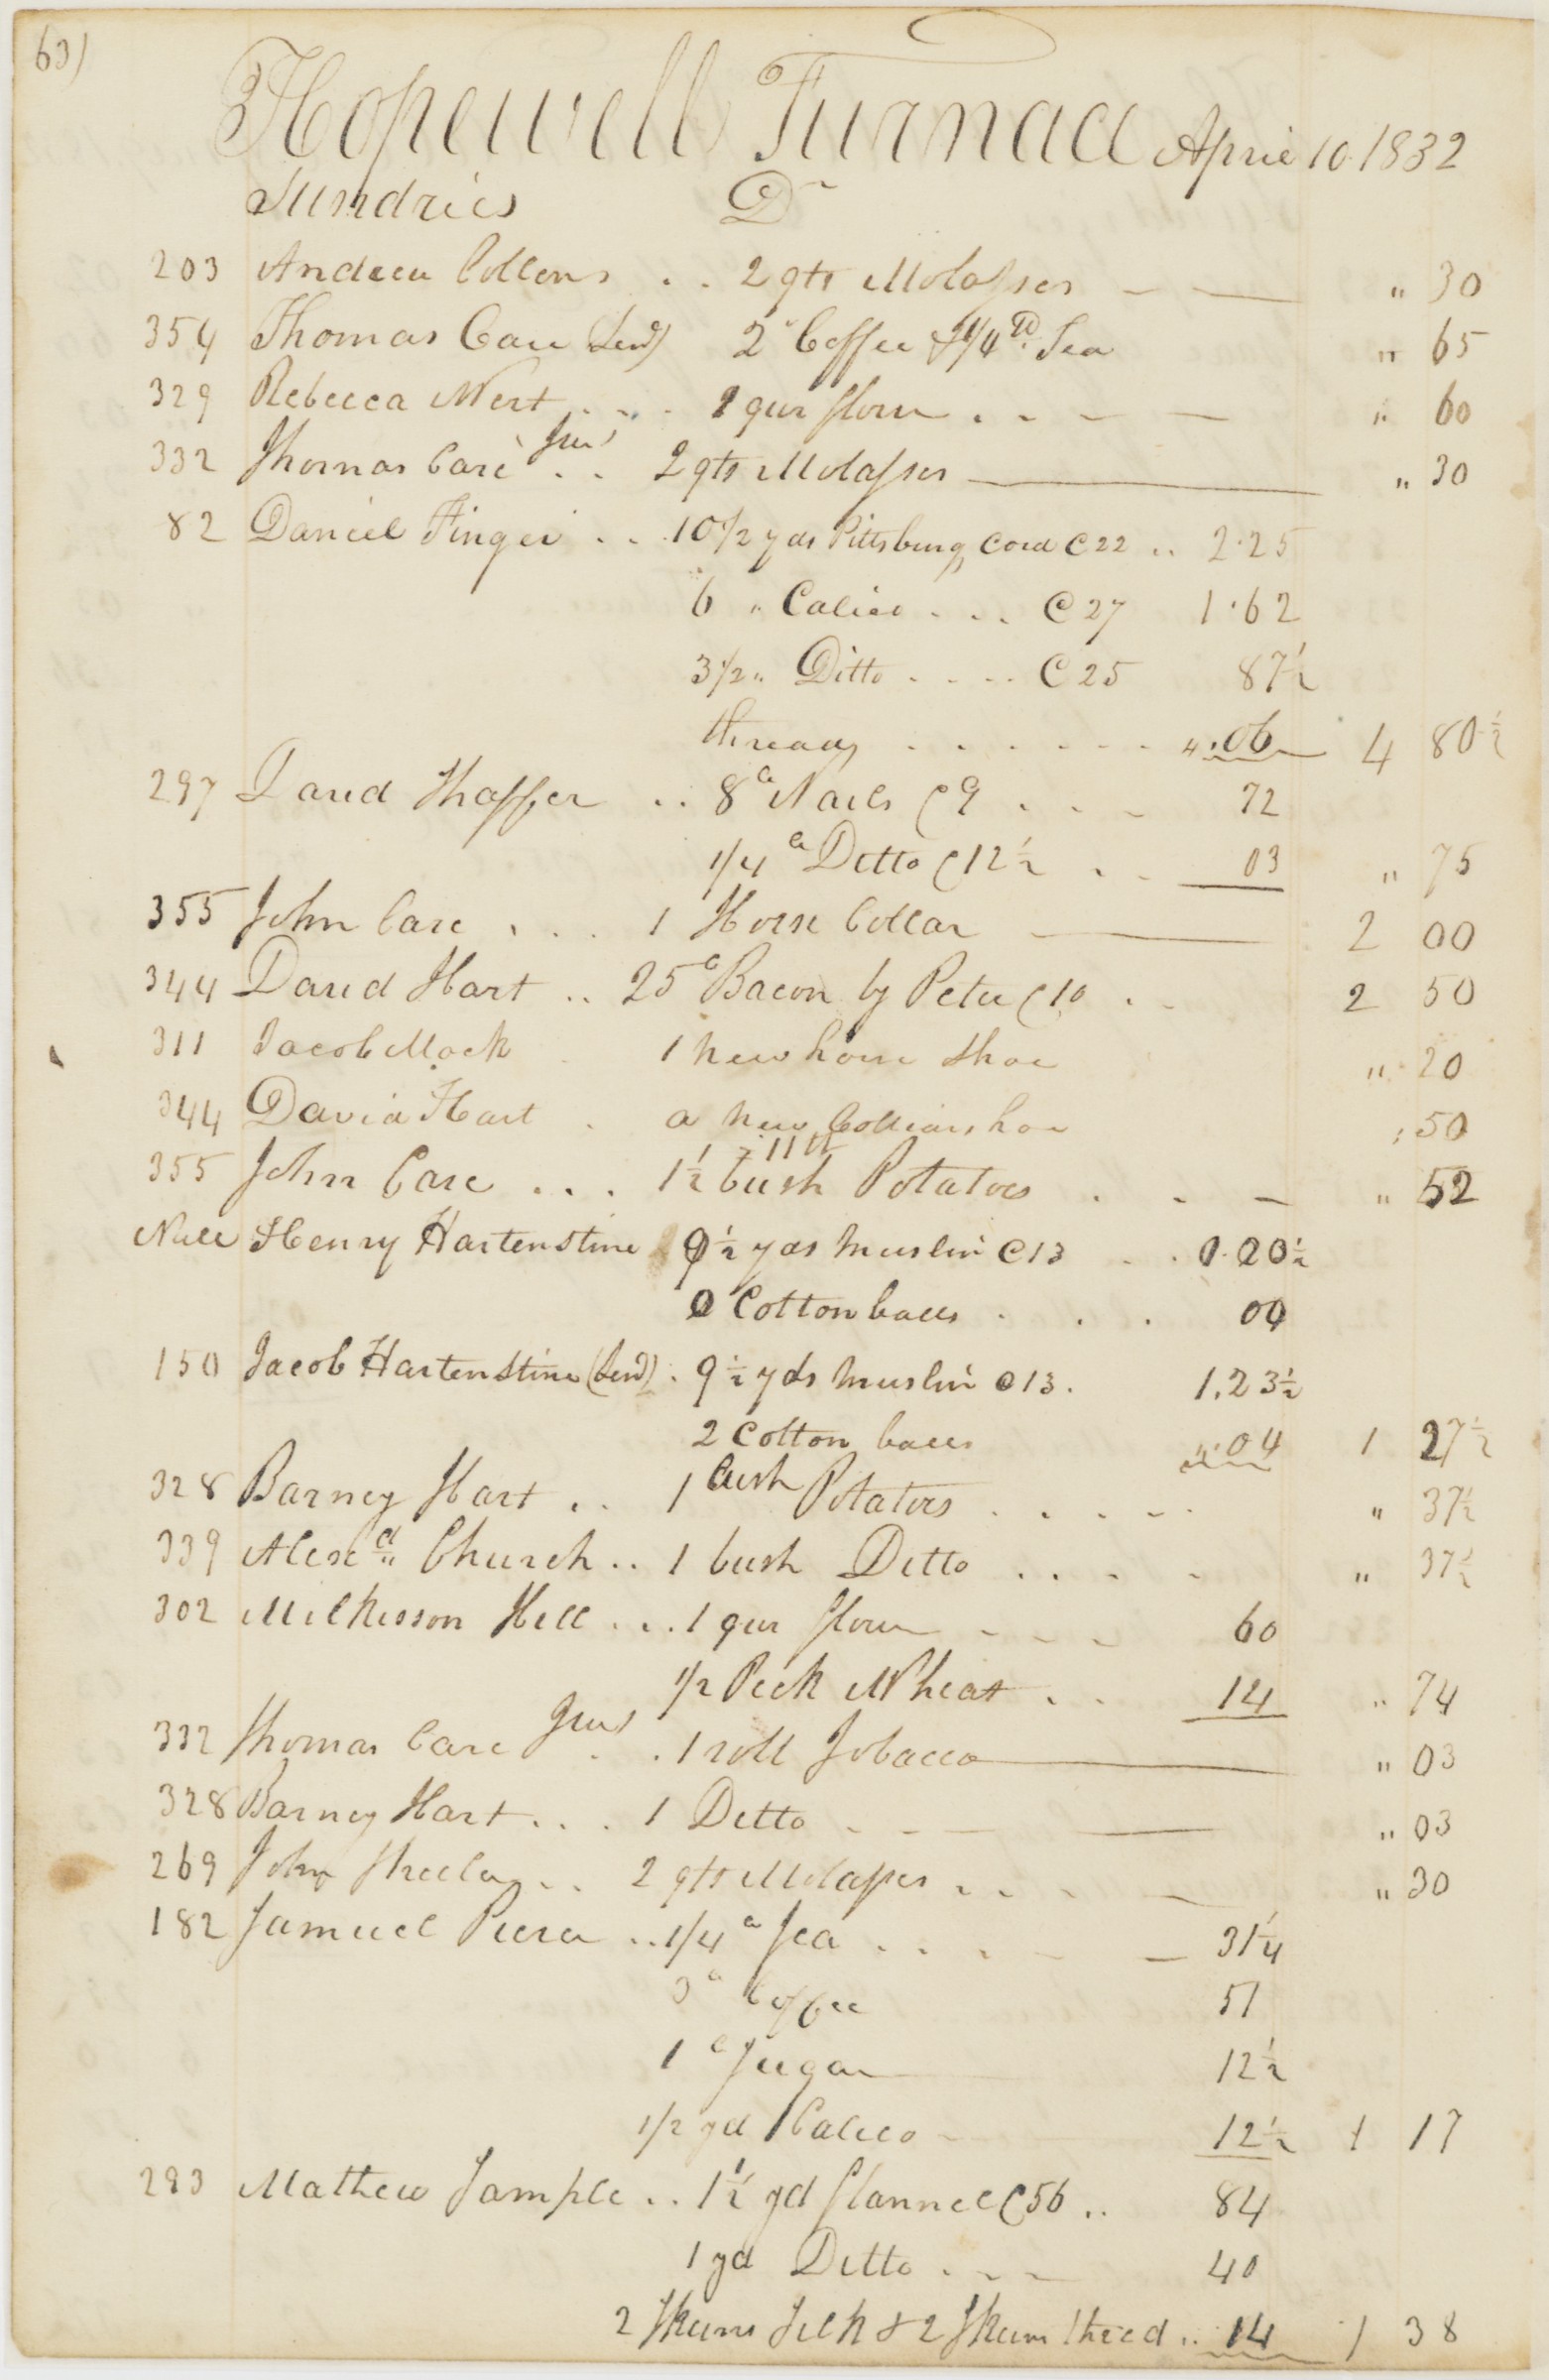 63)
Hopewell Furnace April 10. 1832
Sundries Dr
203 Andrew Collens . . 2 qts Molasses " 30
354 Thomas Care 2 Coffee & 1/4 D. Tea " 65
329 Rebecca Wert . . . 1 qur flour . . " 60
332 Thomas Care Junr . . 2 qts Molasses " 30
82 Daniel Finger . . 10 1/2 yds Pittsburg Cord @ 22 .. 2.25
6 " Calico . . . @ 27 1.62
3 1/2 " Ditto . . . . @ 25 87 1/2
thread . . . . . . ".06 4 80 1/2
297 David Shaffer .. 8 lb Nails @ 9 . . . 72
1/4 lb Ditto @ 12 1/2 . . 03 " 75
355 John Care . . . 1 Horse Collar 2 00
344 David Hart .. 25 lb Bacon by Peter @ 10 . . 2 50
311 Jacob Mock 1 new horse Shoe " 20
344 David Hart . a new Colliar shoe ; 50
355 John Care . . . 1 1/2 bush Potatoes . . " 52
Null Henry Hartenstine 9 1/2 yds Muslin @ 13 . . 0.20 1/2
0 Cotton balls . . . 00
150 Jacob Hartenstine . 9 1/2 yds Muslin @ 13 . 1.23 1/2
2 Cotton balls ".04 1 27 1/2
328 Barney Hart . . 1 bush Potatoes . . . . " 37 1/2
339 Alexd Church .. 1 bush Ditto . . . . " 37 1/2
302 Wilkesson Hill . . . 1 qur flour 60
1/2 Peck Wheat . . 14 " 74
332 Thomas Care Junr . . 1 roll Tobacco " 03
328 Barney Hart . . . 1 Ditto " 03
269 John Sheeler . . 2 qts Molasses . . " 30
182 Samuel Pierce .. 1/4 lb Tea . . . 31 1/4
3 lb Coffee 51
1 lb Sugar 12 1/2
1/2 yd Calico 12 1/2 1 17
293 Mathew Sample .. 1 1/2 yd flannel @ 56 .. 84
1 yd Ditto . . . 40
2 Skeins Silk & 2 Skeins thread .. 14 1 38